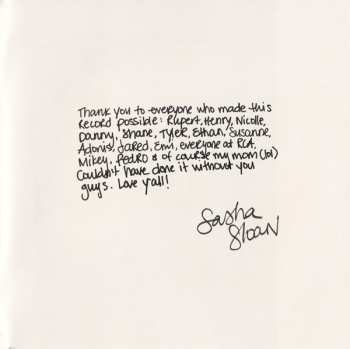 Thank you to everyone who made this
record possible: Rupert, Henry, Nicolle,
Danny, Shane, Tyler, Ethan, Susanne,
Adonis, Jared, Emi, everyone at RCA,
Mikey, PEDRO & of course my mom (lol)
Couldn't have done it without you
guys. Love y'all!
Sasha
Sloan